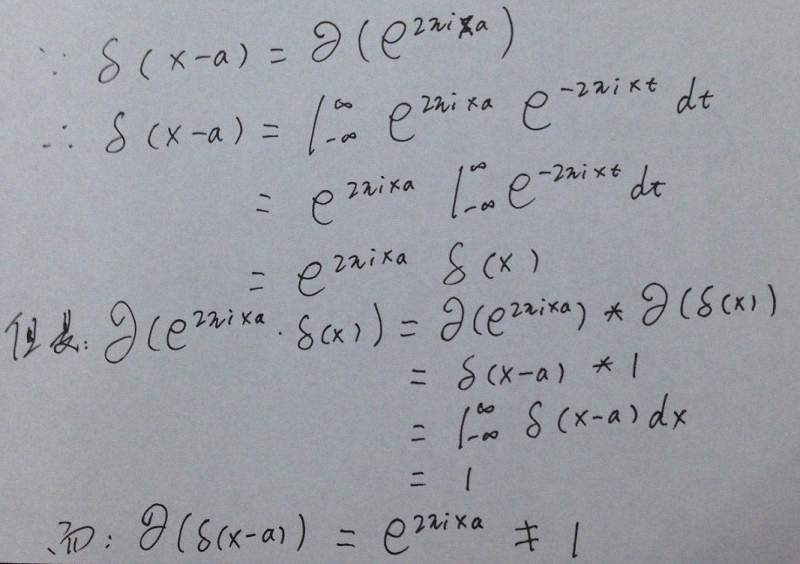 ∵ δ(x-a) = ℱ(e^{2πixa})
∴ δ(x-a) = ∫_{-∞}^{∞} e^{2πixa} e^{-2πixt} dt
= e^{2πixa} ∫_{-∞}^{∞} e^{-2πixt} dt
= e^{2πixa} δ(x)
但是: ℱ(e^{2πixa} · δ(x)) = ℱ(e^{2πixa}) * ℱ(δ(x))
= δ(x-a) * 1
= ∫_{-∞}^{∞} δ(x-a) dx
= 1
而: ℱ(δ(x-a)) = e^{2πixa} ≠ 1